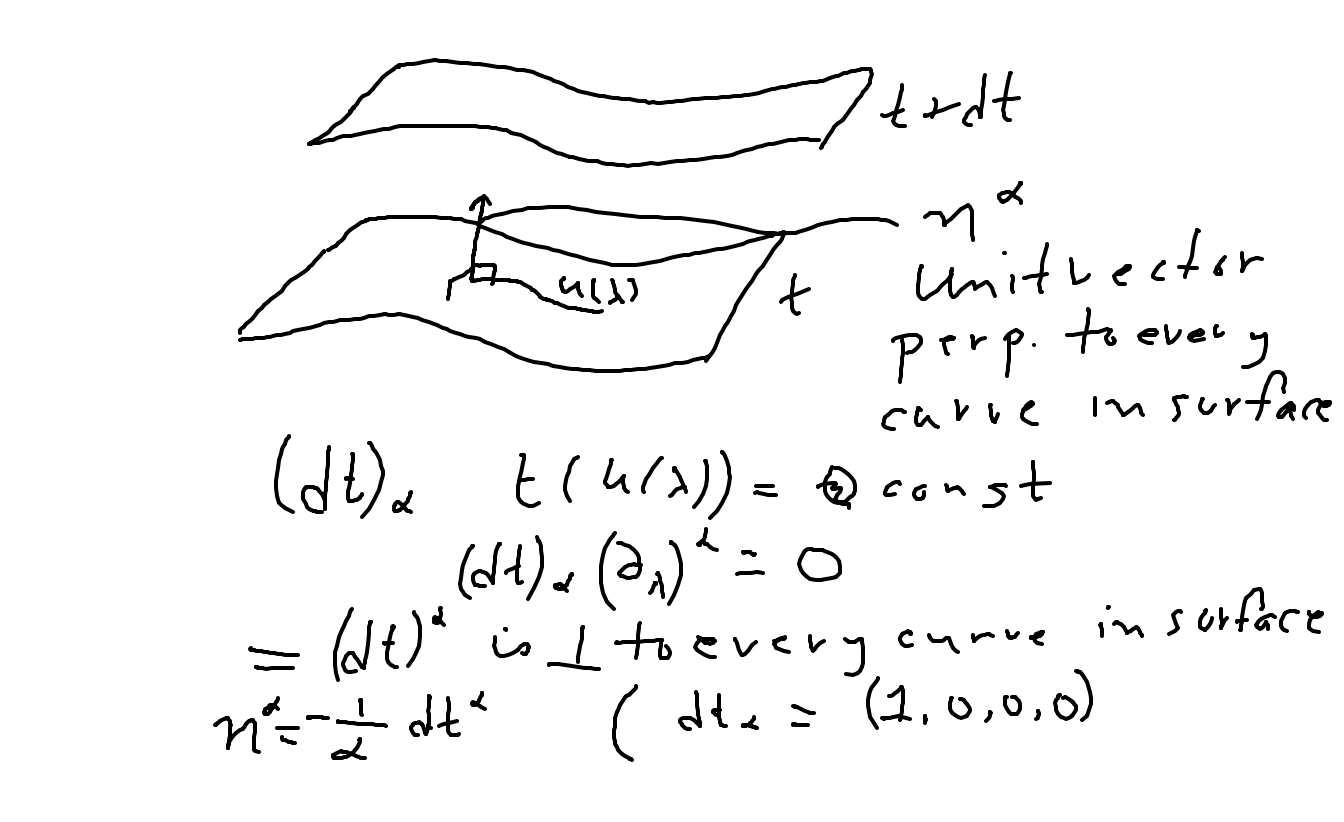 t+dt
n^α
u(λ)
t
Unit vector
perp. to every
curve in surface
(dt)_α t(u(λ)) = const
(dt)_α (∂_λ)^α = 0
= (dt)^α is ⊥ to every curve in surface
n^α = -1/α dt^α ( dt_α = (1,0,0,0)